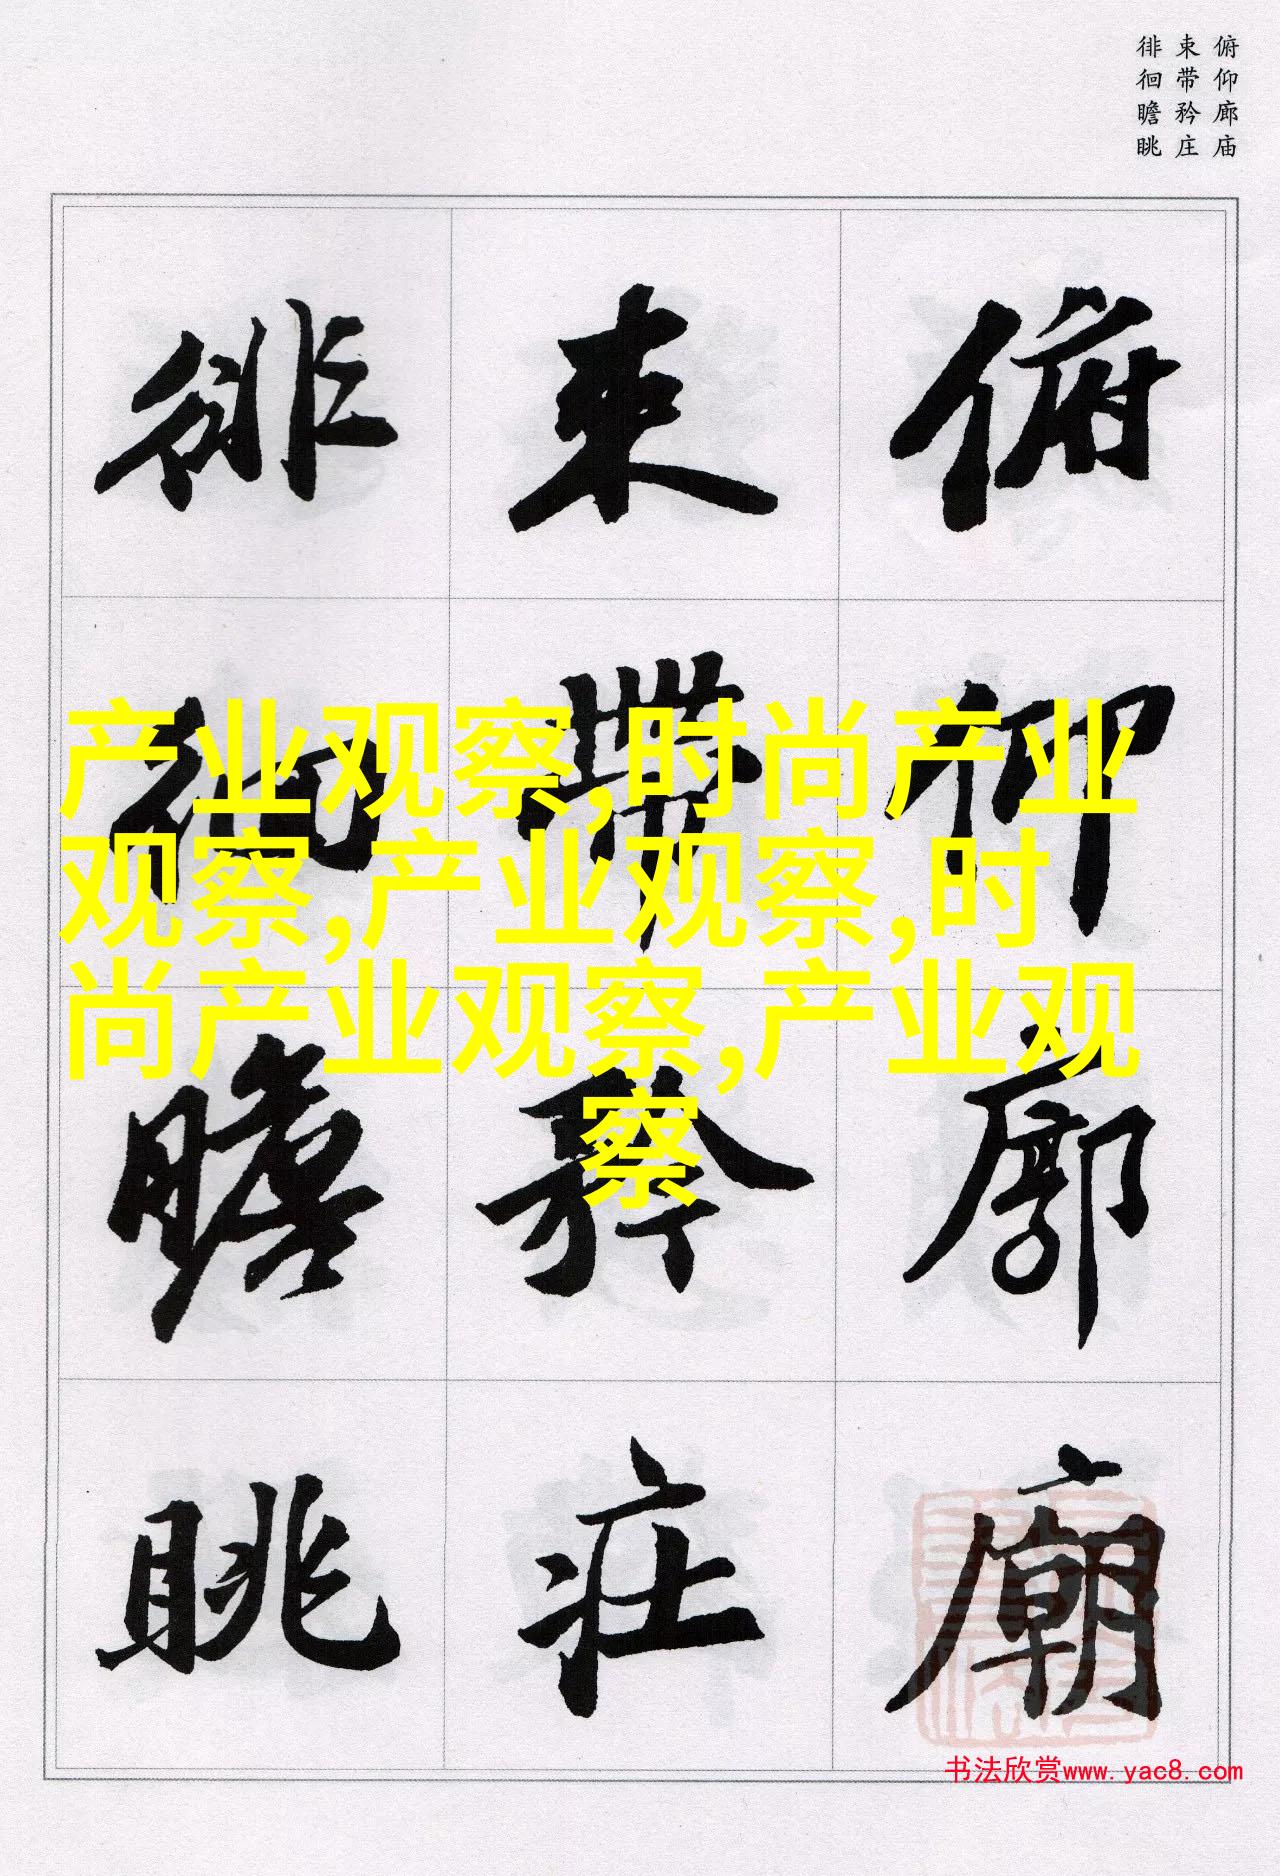 俯仰廊庙
束带矜庄
徘徊瞻眺
俯仰廊廟
束帶矜莊
徘徊瞻眺
产业观察,时尚产业
观察,产业观察,时
尚产业观察,产业观
察
书法欣赏www.yac8.com